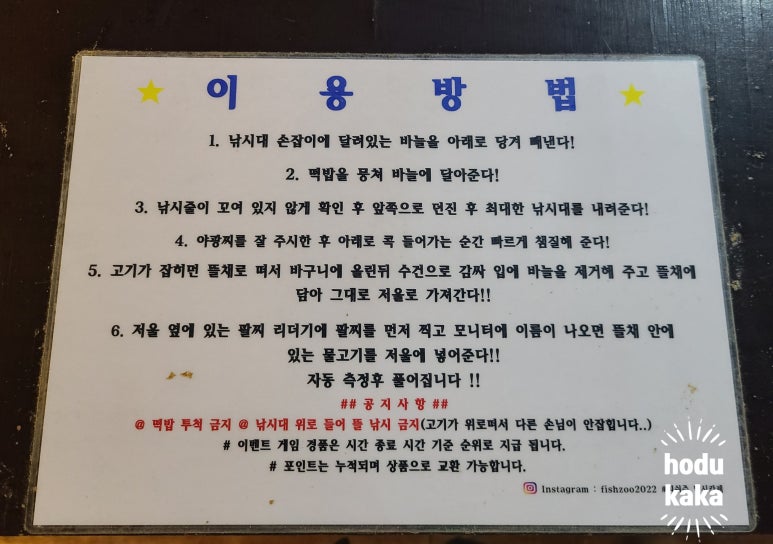 이 용 방 법
1. 낚시대 손잡이에 달려있는 바늘을 아래로 당겨 빼낸다!
2. 떡밥을 뭉쳐 바늘에 달아준다!
3. 낚시줄이 꼬여 있지 않게 확인 후 앞쪽으로 던진 후 최대한 낚시대를 내려준다!
4. 야광찌를 잘 주시한 후 아래로 콕 들어가는 순간 빠르게 챔질해 준다!
5. 고기가 잡히면 뜰채로 떠서 바구니에 올린뒤 수건으로 감싸 입에 바늘을 제거해 주고 뜰채에
담아 그대로 저울로 가져간다!!
6. 저울 옆에 있는 팔찌 리더기에 팔찌를 먼저 찍고 모니터에 이름이 나오면 뜰채 안에
있는 물고기를 저울에 넣어준다!!
자동 측정후 풀어집니다 !!
## 공지사항 ##
@ 떡밥 투척 금지 @ 낚시대 위로 들어 뜰 낚시 금지(고기가 위로떠서 다른 손님이 안잡힙니다..)
# 이벤트 게임 경품은 시간 종료 시간 기준 순위로 지급 됩니다.
# 포인트는 누적되며 상품으로 교환 가능합니다.
Instagram : fishzoo2022
hodu
kaka